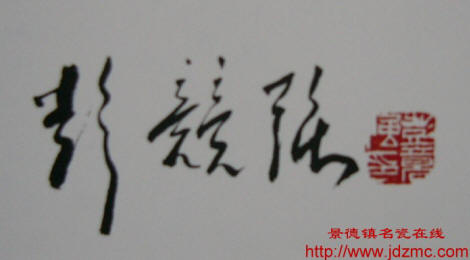 彭競强
景德镇名瓷在线
http://www.jdzmc.com